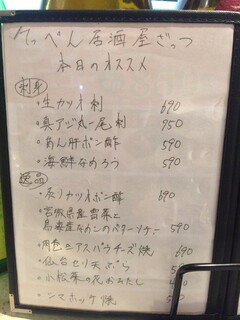 てっぺん居酒屋ざっつ
本日のオススメ
刺身
・生カツオ刺 690
・真アジ丸一尾刺 750
・あん肝ポン酢 590
・海鮮なめろう 590
逸品
・炙りカツオポン酢 690
・宮城県産雪菜と
鳥海産なめこのバターソテー 590
・肉巻アスパラチーズ焼 690
・仙台セリ天ぷら
・小松菜の花おひたし
・シマホッケ焼